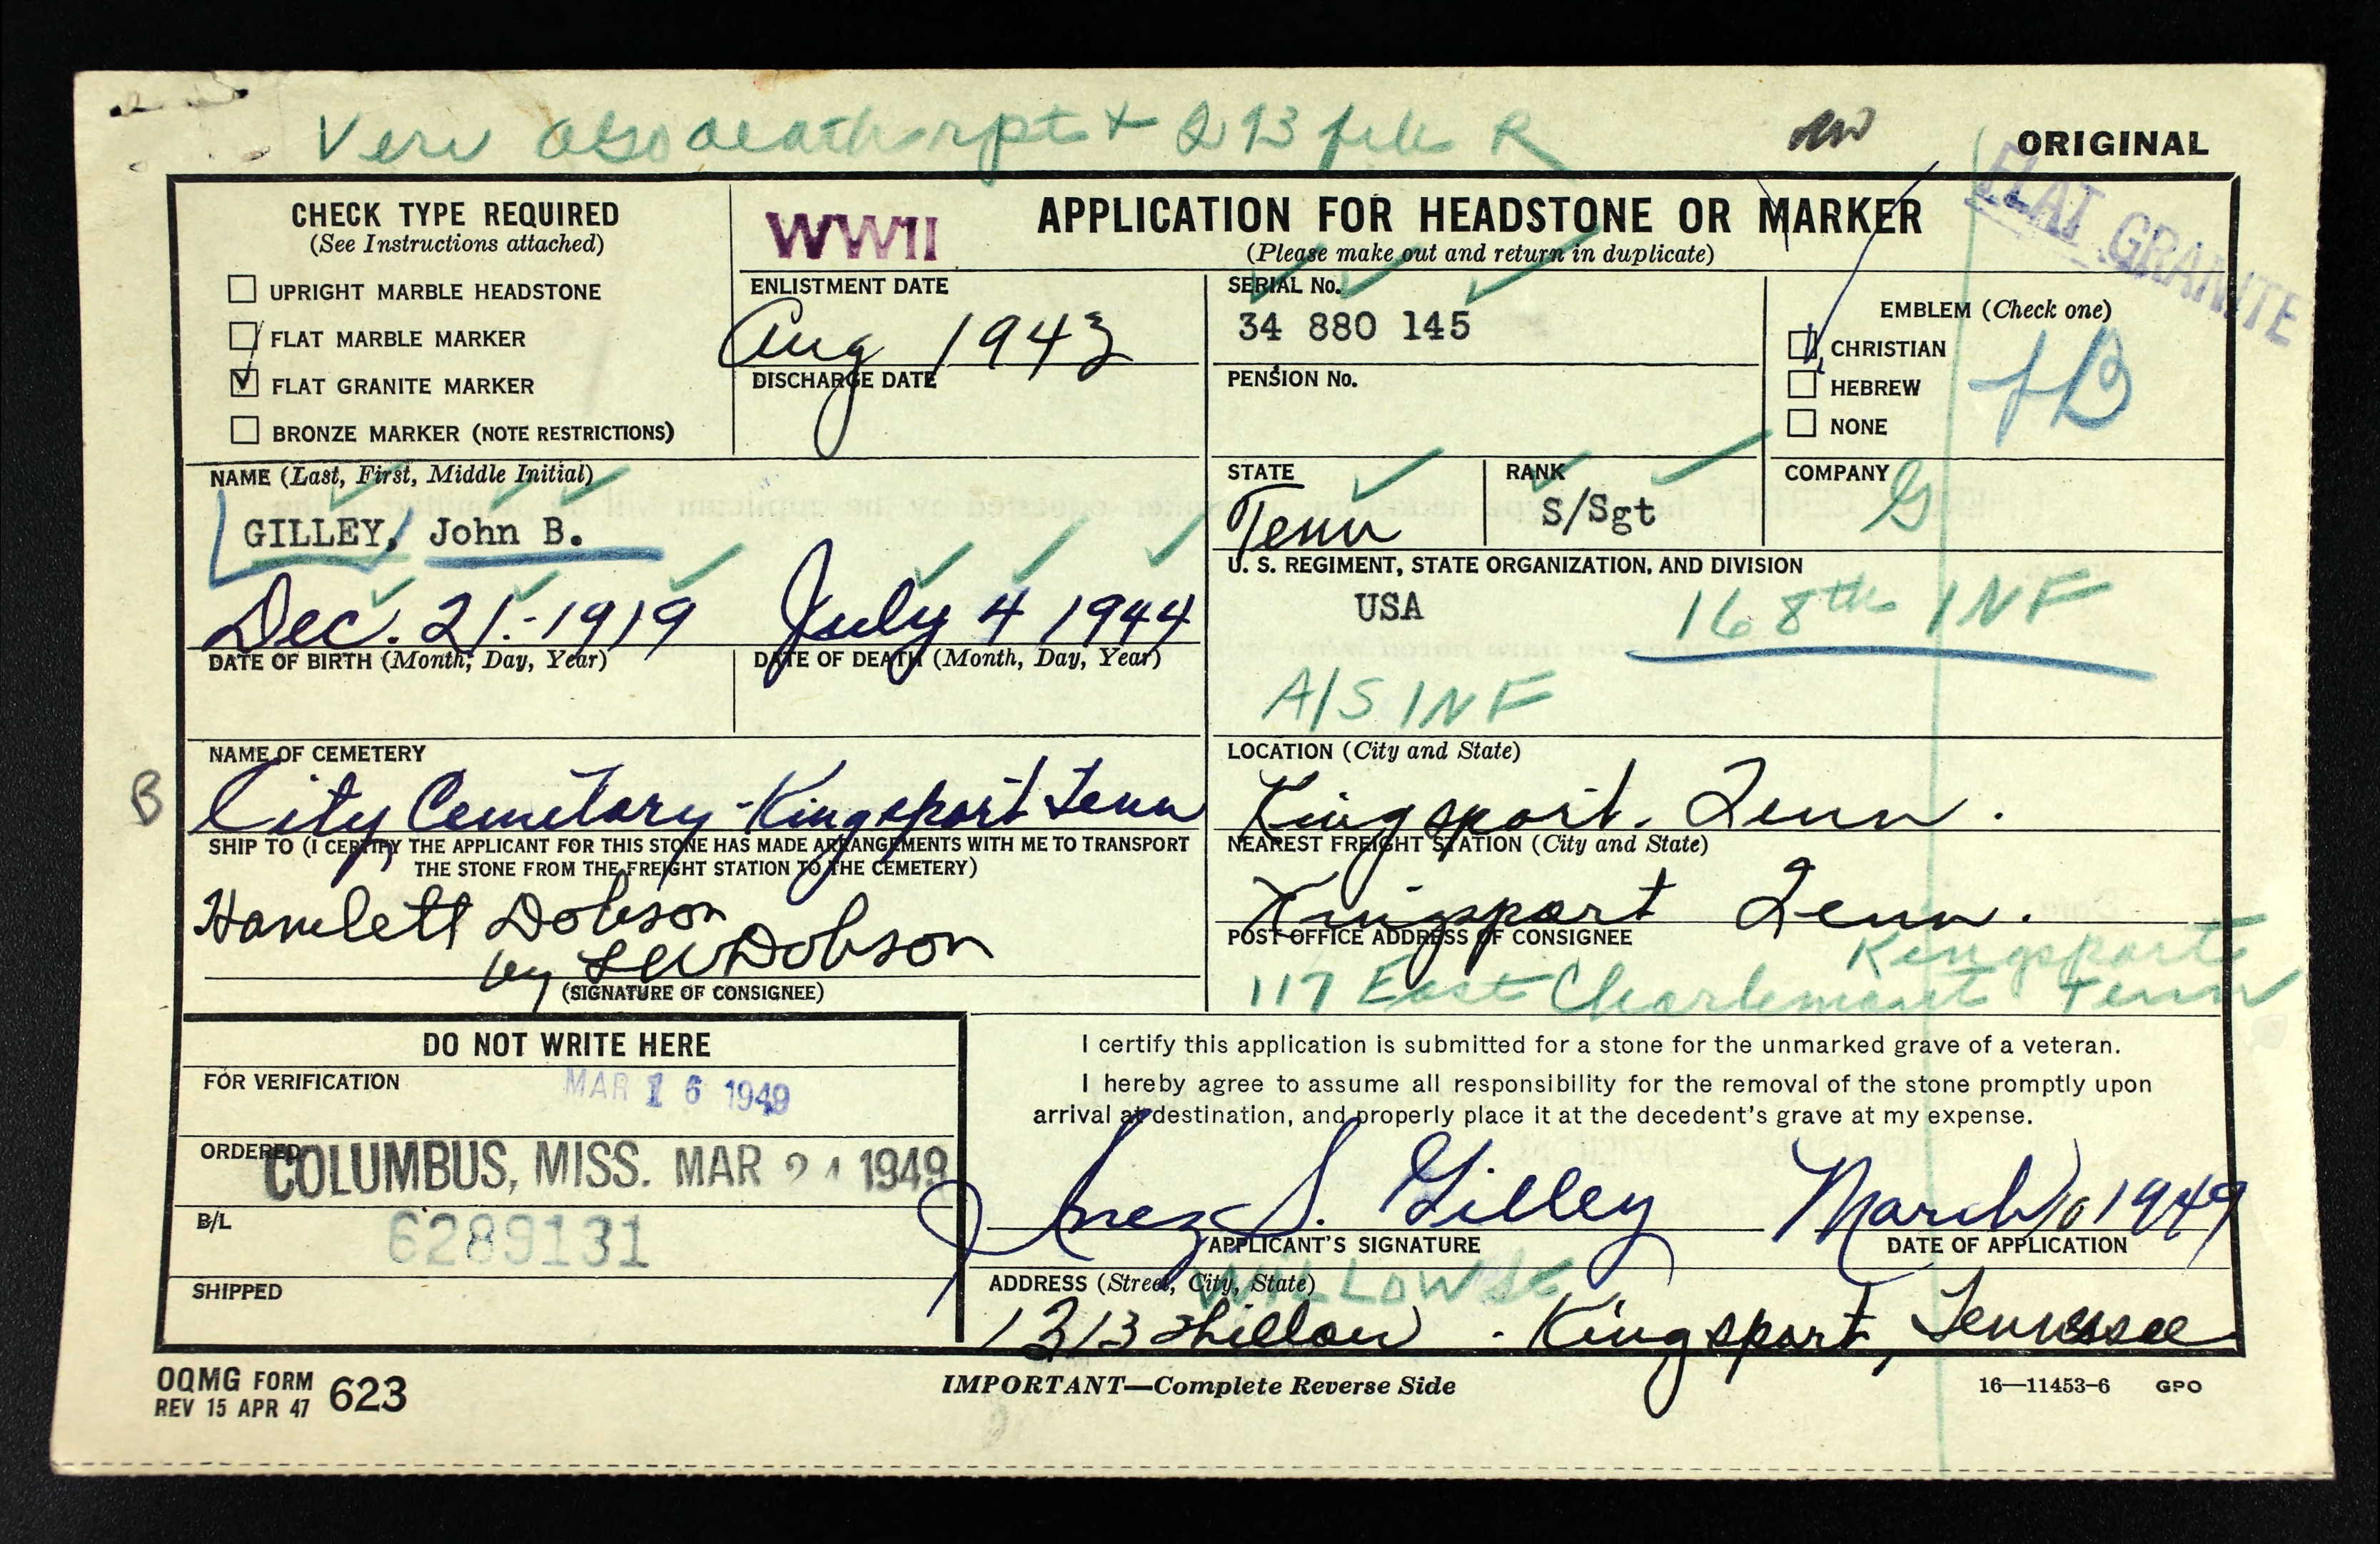 Veri also death rpt + 293 file R
ORIGINAL
FLAT GRANITE
CHECK TYPE REQUIRED
(See Instructions attached)
UPRIGHT MARBLE HEADSTONE
FLAT MARBLE MARKER
FLAT GRANITE MARKER
BRONZE MARKER (NOTE RESTRICTIONS)
WWII
APPLICATION FOR HEADSTONE OR MARKER
(Please make out and return in duplicate)
ENLISTMENT DATE
Aug 1943
DISCHARGE DATE
SERIAL No.
34 880 145
PENSION No.
EMBLEM (Check one)
CHRISTIAN
HEBREW
NONE
NAME (Last, First, Middle Initial)
GILLEY, John B.
STATE
Tenn
RANK
S/Sgt
COMPANY
G
U. S. REGIMENT, STATE ORGANIZATION, AND DIVISION
USA 168th INF
A/S INF
Dec. 21.-1919 July 4 1944
DATE OF BIRTH (Month, Day, Year) DATE OF DEATH (Month, Day, Year)
NAME OF CEMETERY
B
City Cemetary - Kingsport Tenn
LOCATION (City and State)
Kingsport. Tenn.
SHIP TO (I CERTIFY THE APPLICANT FOR THIS STONE HAS MADE ARRANGEMENTS WITH ME TO TRANSPORT
THE STONE FROM THE FREIGHT STATION TO THE CEMETERY)
Hamlett Dobson
by LW Dobson
(SIGNATURE OF CONSIGNEE)
NEAREST FREIGHT STATION (City and State)
Kingsport Tenn.
POST OFFICE ADDRESS OF CONSIGNEE
Kingsport
117 East Charlemont Tenn
DO NOT WRITE HERE
FOR VERIFICATION
MAR 16 1949
ORDERED
COLUMBUS, MISS. MAR 24 1949
B/L
6289131
SHIPPED
I certify this application is submitted for a stone for the unmarked grave of a veteran.
I hereby agree to assume all responsibility for the removal of the stone promptly upon
arrival at destination, and properly place it at the decedent's grave at my expense.
Inez S. Gilley March 10 1949
APPLICANT'S SIGNATURE DATE OF APPLICATION
ADDRESS (Street, City, State)
WILLOW St
1313 Willow - Kingsport, Tennessee
OQMG FORM 623
REV 15 APR 47
IMPORTANT—Complete Reverse Side
16—11453-6 GPO